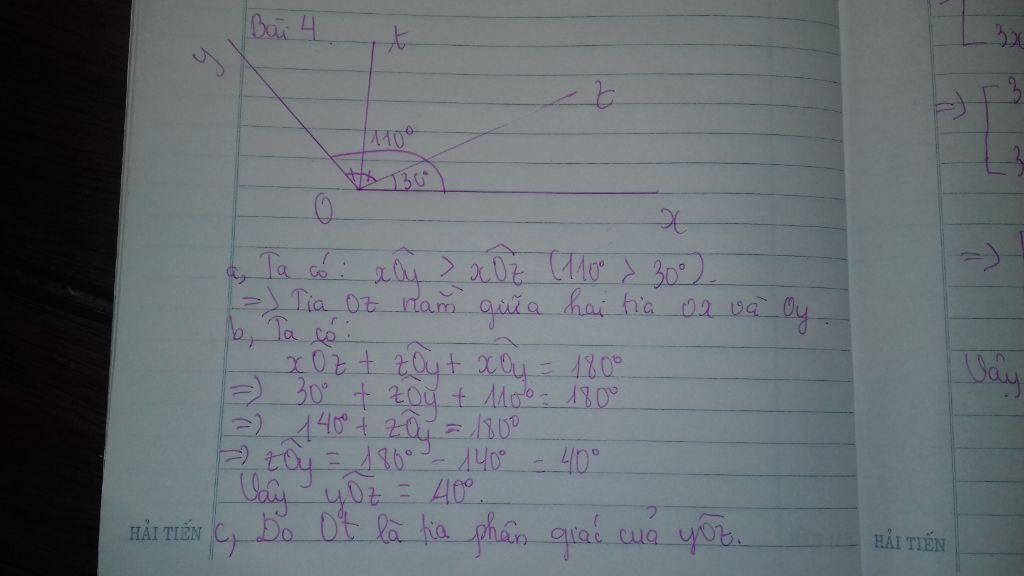 Bài 4
y
t
z
110°
30°
O
x
a, Ta có: xÔy > xÔz (110° > 30°).
=> Tia Oz nằm giữa hai tia Ox và Oy.
b, Ta có:
xÔz + zÔy + xÔy = 180°
=> 30° + zÔy + 110° = 180°
=> 140° + zÔy = 180°
=> zÔy = 180° - 140° = 40°
Vậy yÔz = 40°.
c, Do Ot là tia phân giác của yÔz.
HẢI TIẾN
HẢI TIẾN
3x
=> [ 3
3
=>
Vậy